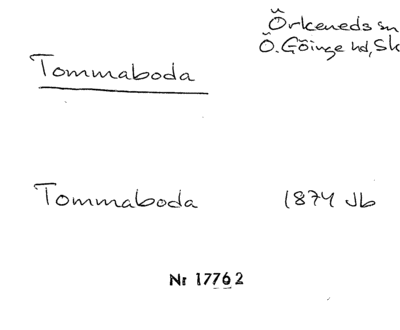 Örkeneds sn
Ö. Göinge hd, Sk
Tommaboda
Tommaboda 1874 Jb
Nr 17762